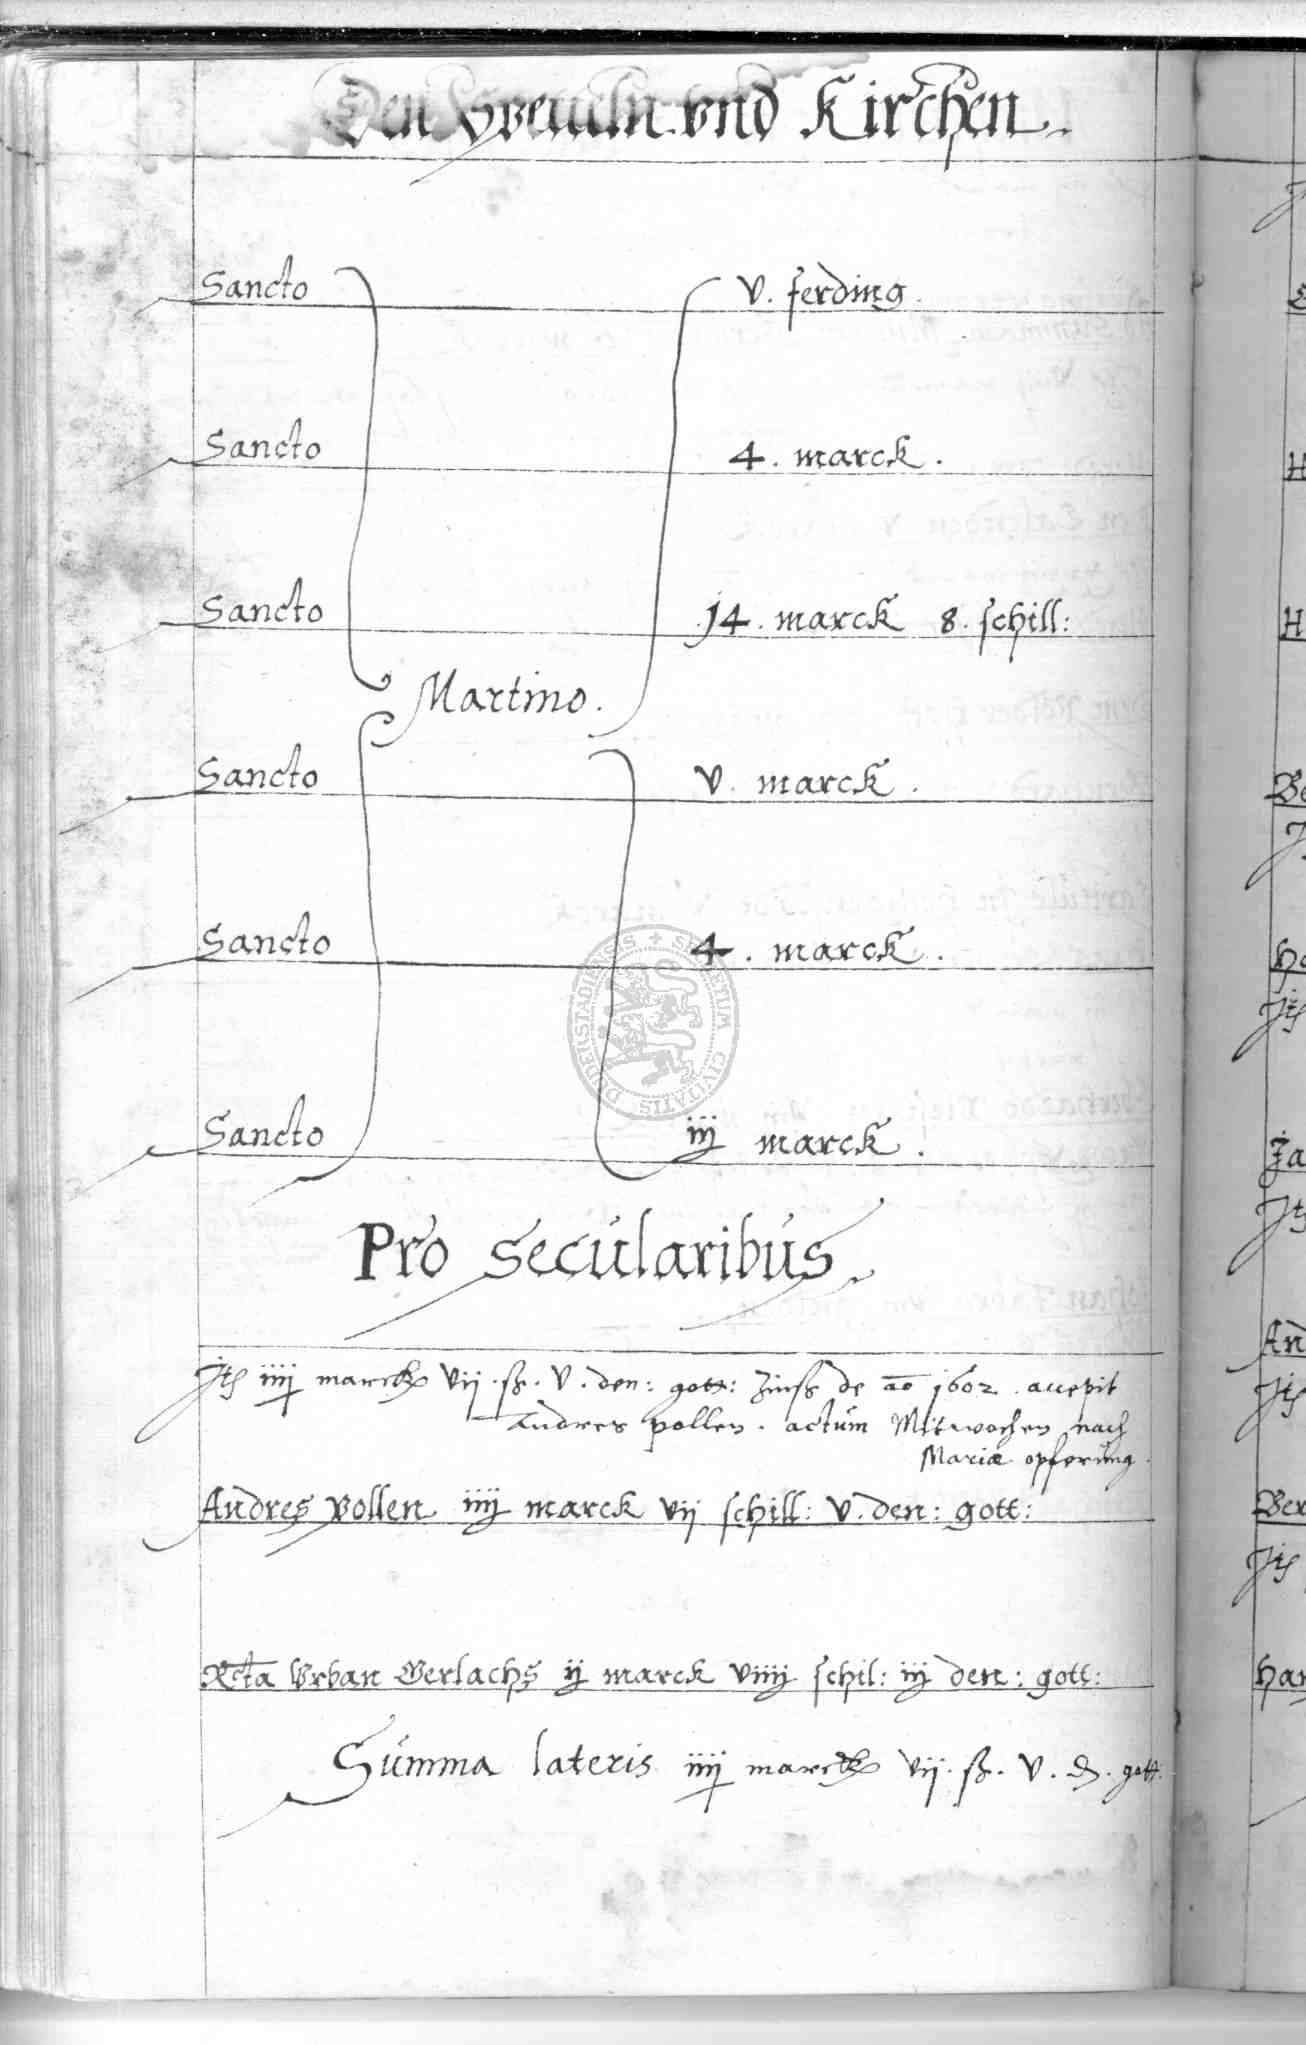 Den Spetteln vnd Kirchen
Sancto v. ferding.
Sancto 4. marck.
Sancto 14. marck 8. schill:
Martino.
Sancto v. marck.
Sancto 4. marck.
Sancto iij marck.
SIGILLUM CIVITATIS DUDERSTADIENSIS
Pro secularibus
Jts iiij marck vij. ß. v. den: gott: Zinß de ao 1602. accepit
Andres pollen. actum Mitwochen nach
Mariæ opferung.
Andres Pollen iiij marck vij schill: v. den: gott:
Rcta Vrban Gerlachs ij marck viiij schil: iij den: gott:
Summa lateris iiij marck vij. ß. v. d. gott.